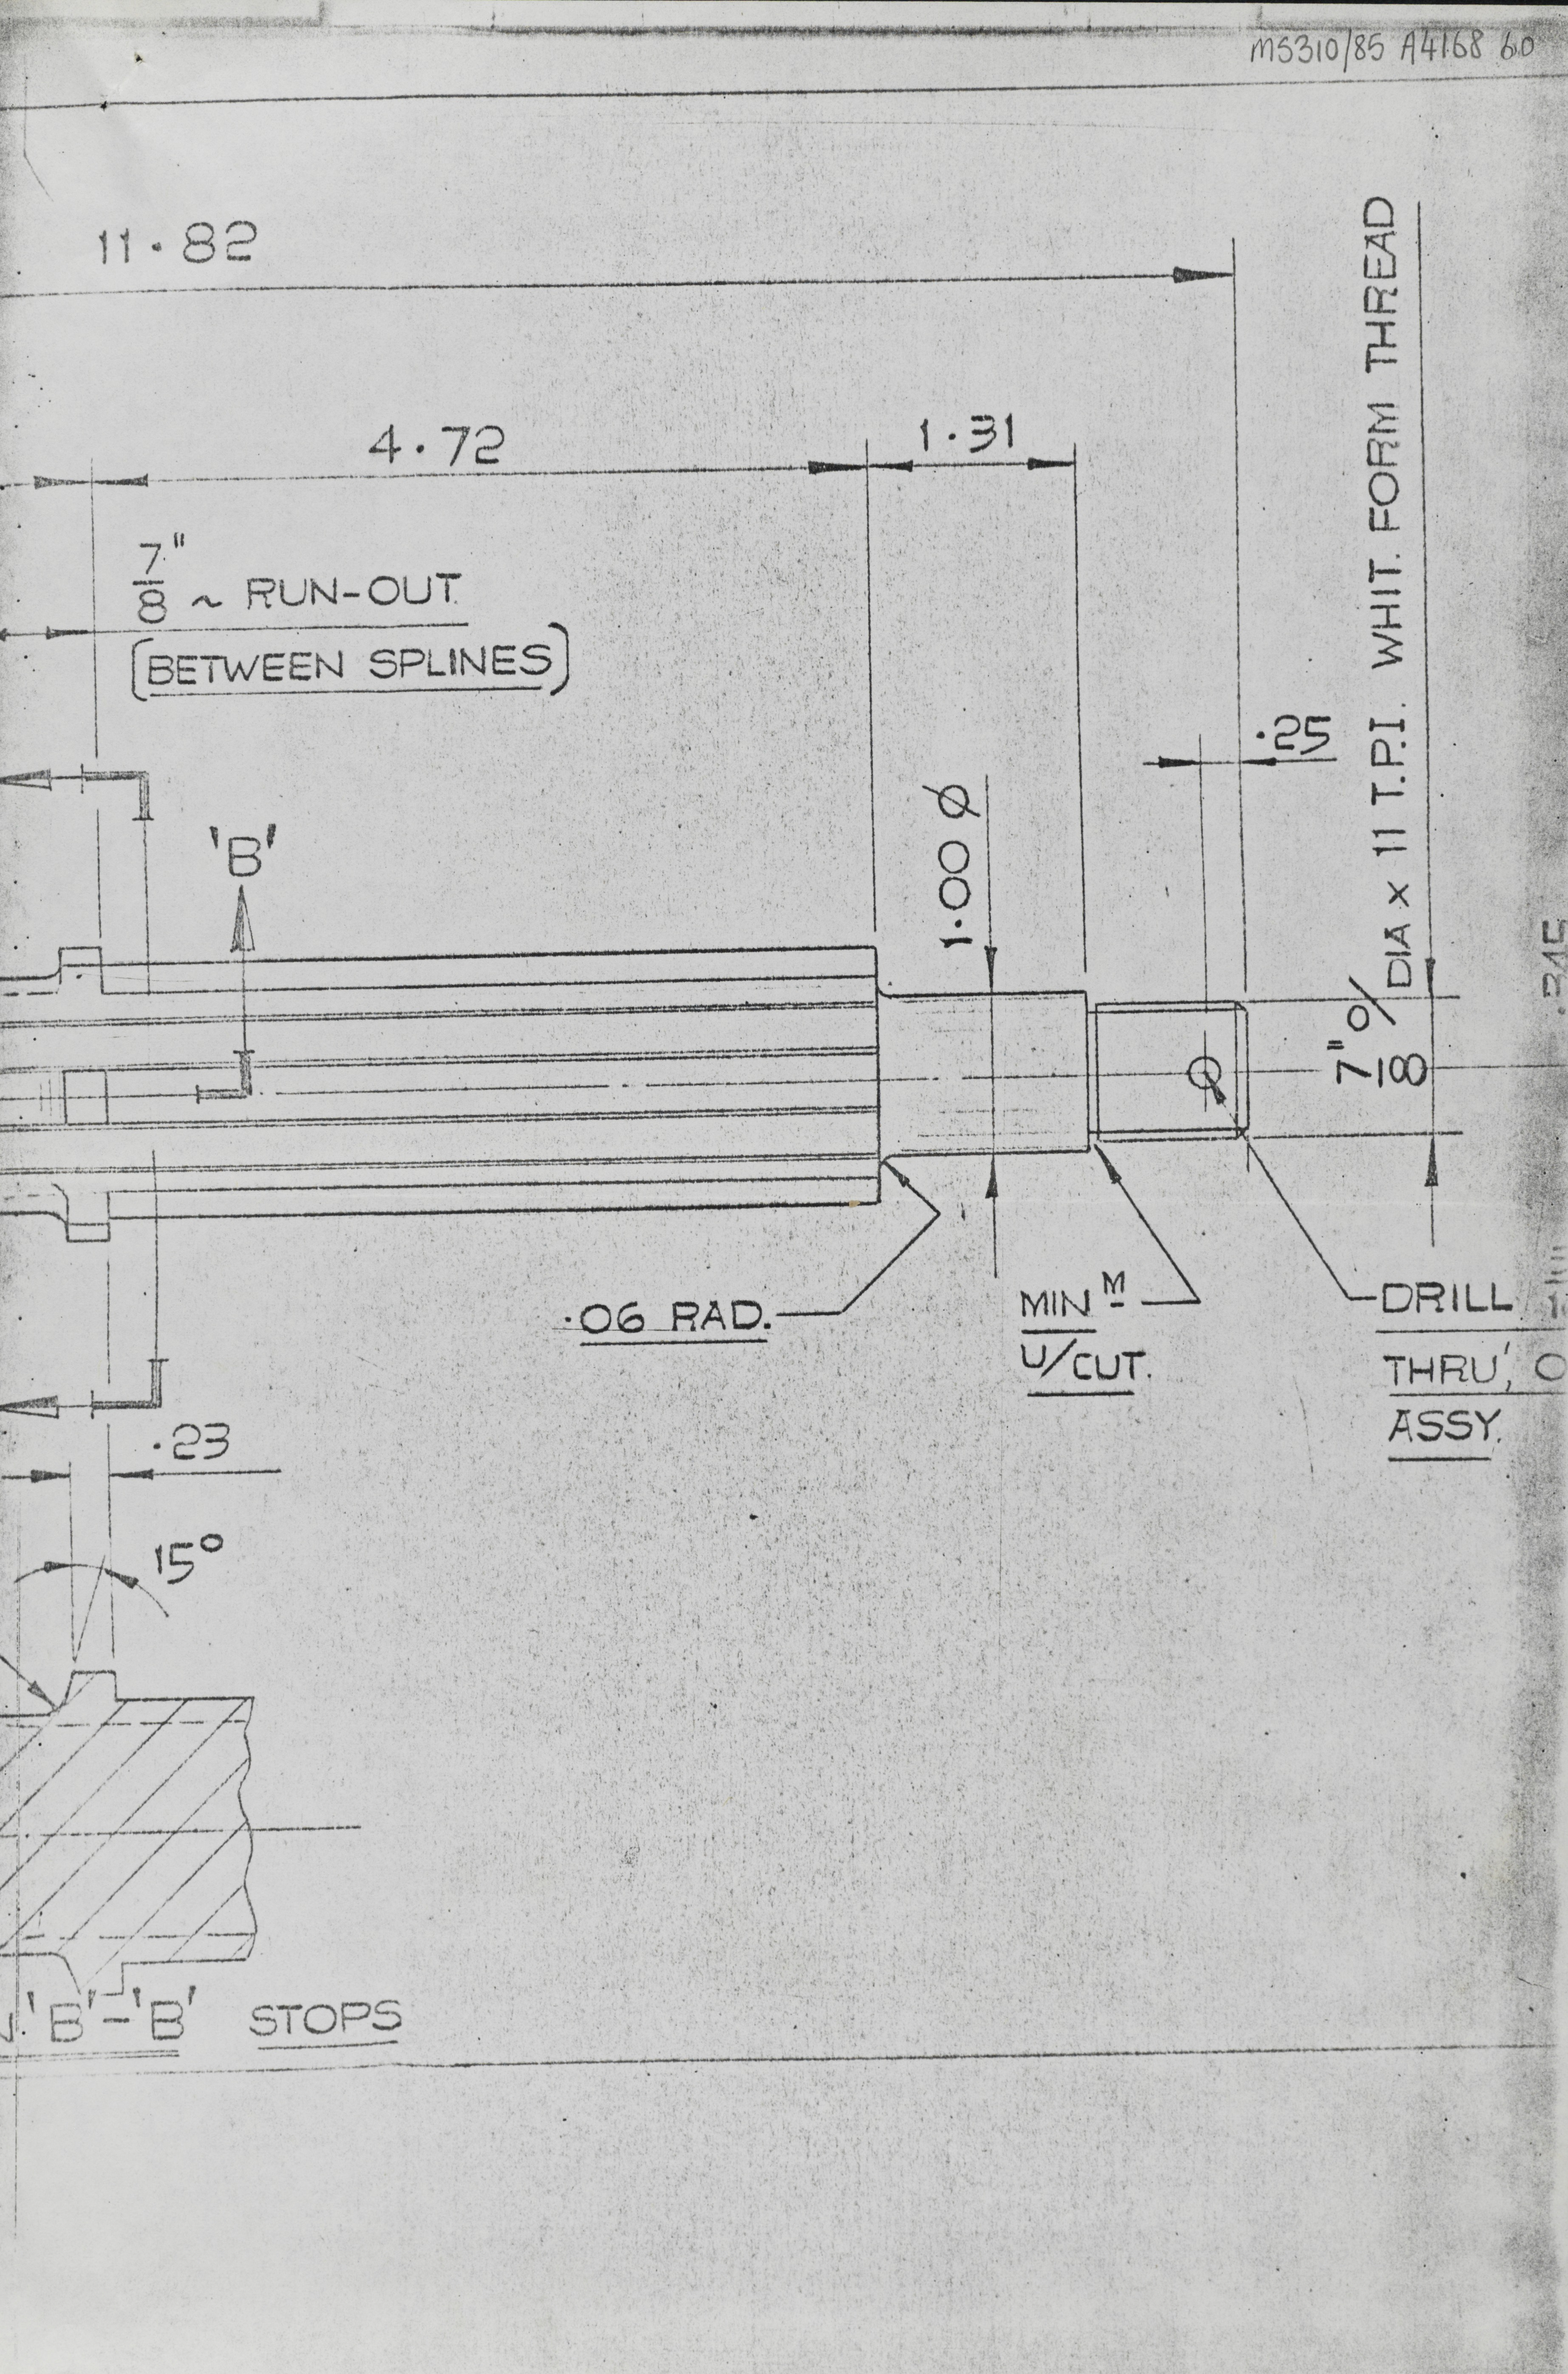 MS310/85 A4168 60
11.82
4.72
1.31
7"/8 ~ RUN-OUT
(BETWEEN SPLINES)
.25
7"/8 O/DIA x 11 T.P.I. WHIT. FORM THREAD
1.00 Ø
'B'
.06 RAD.
MIN M
U/CUT.
DRILL
THRU',
ASSY.
.23
15°
'B'-'B' STOPS